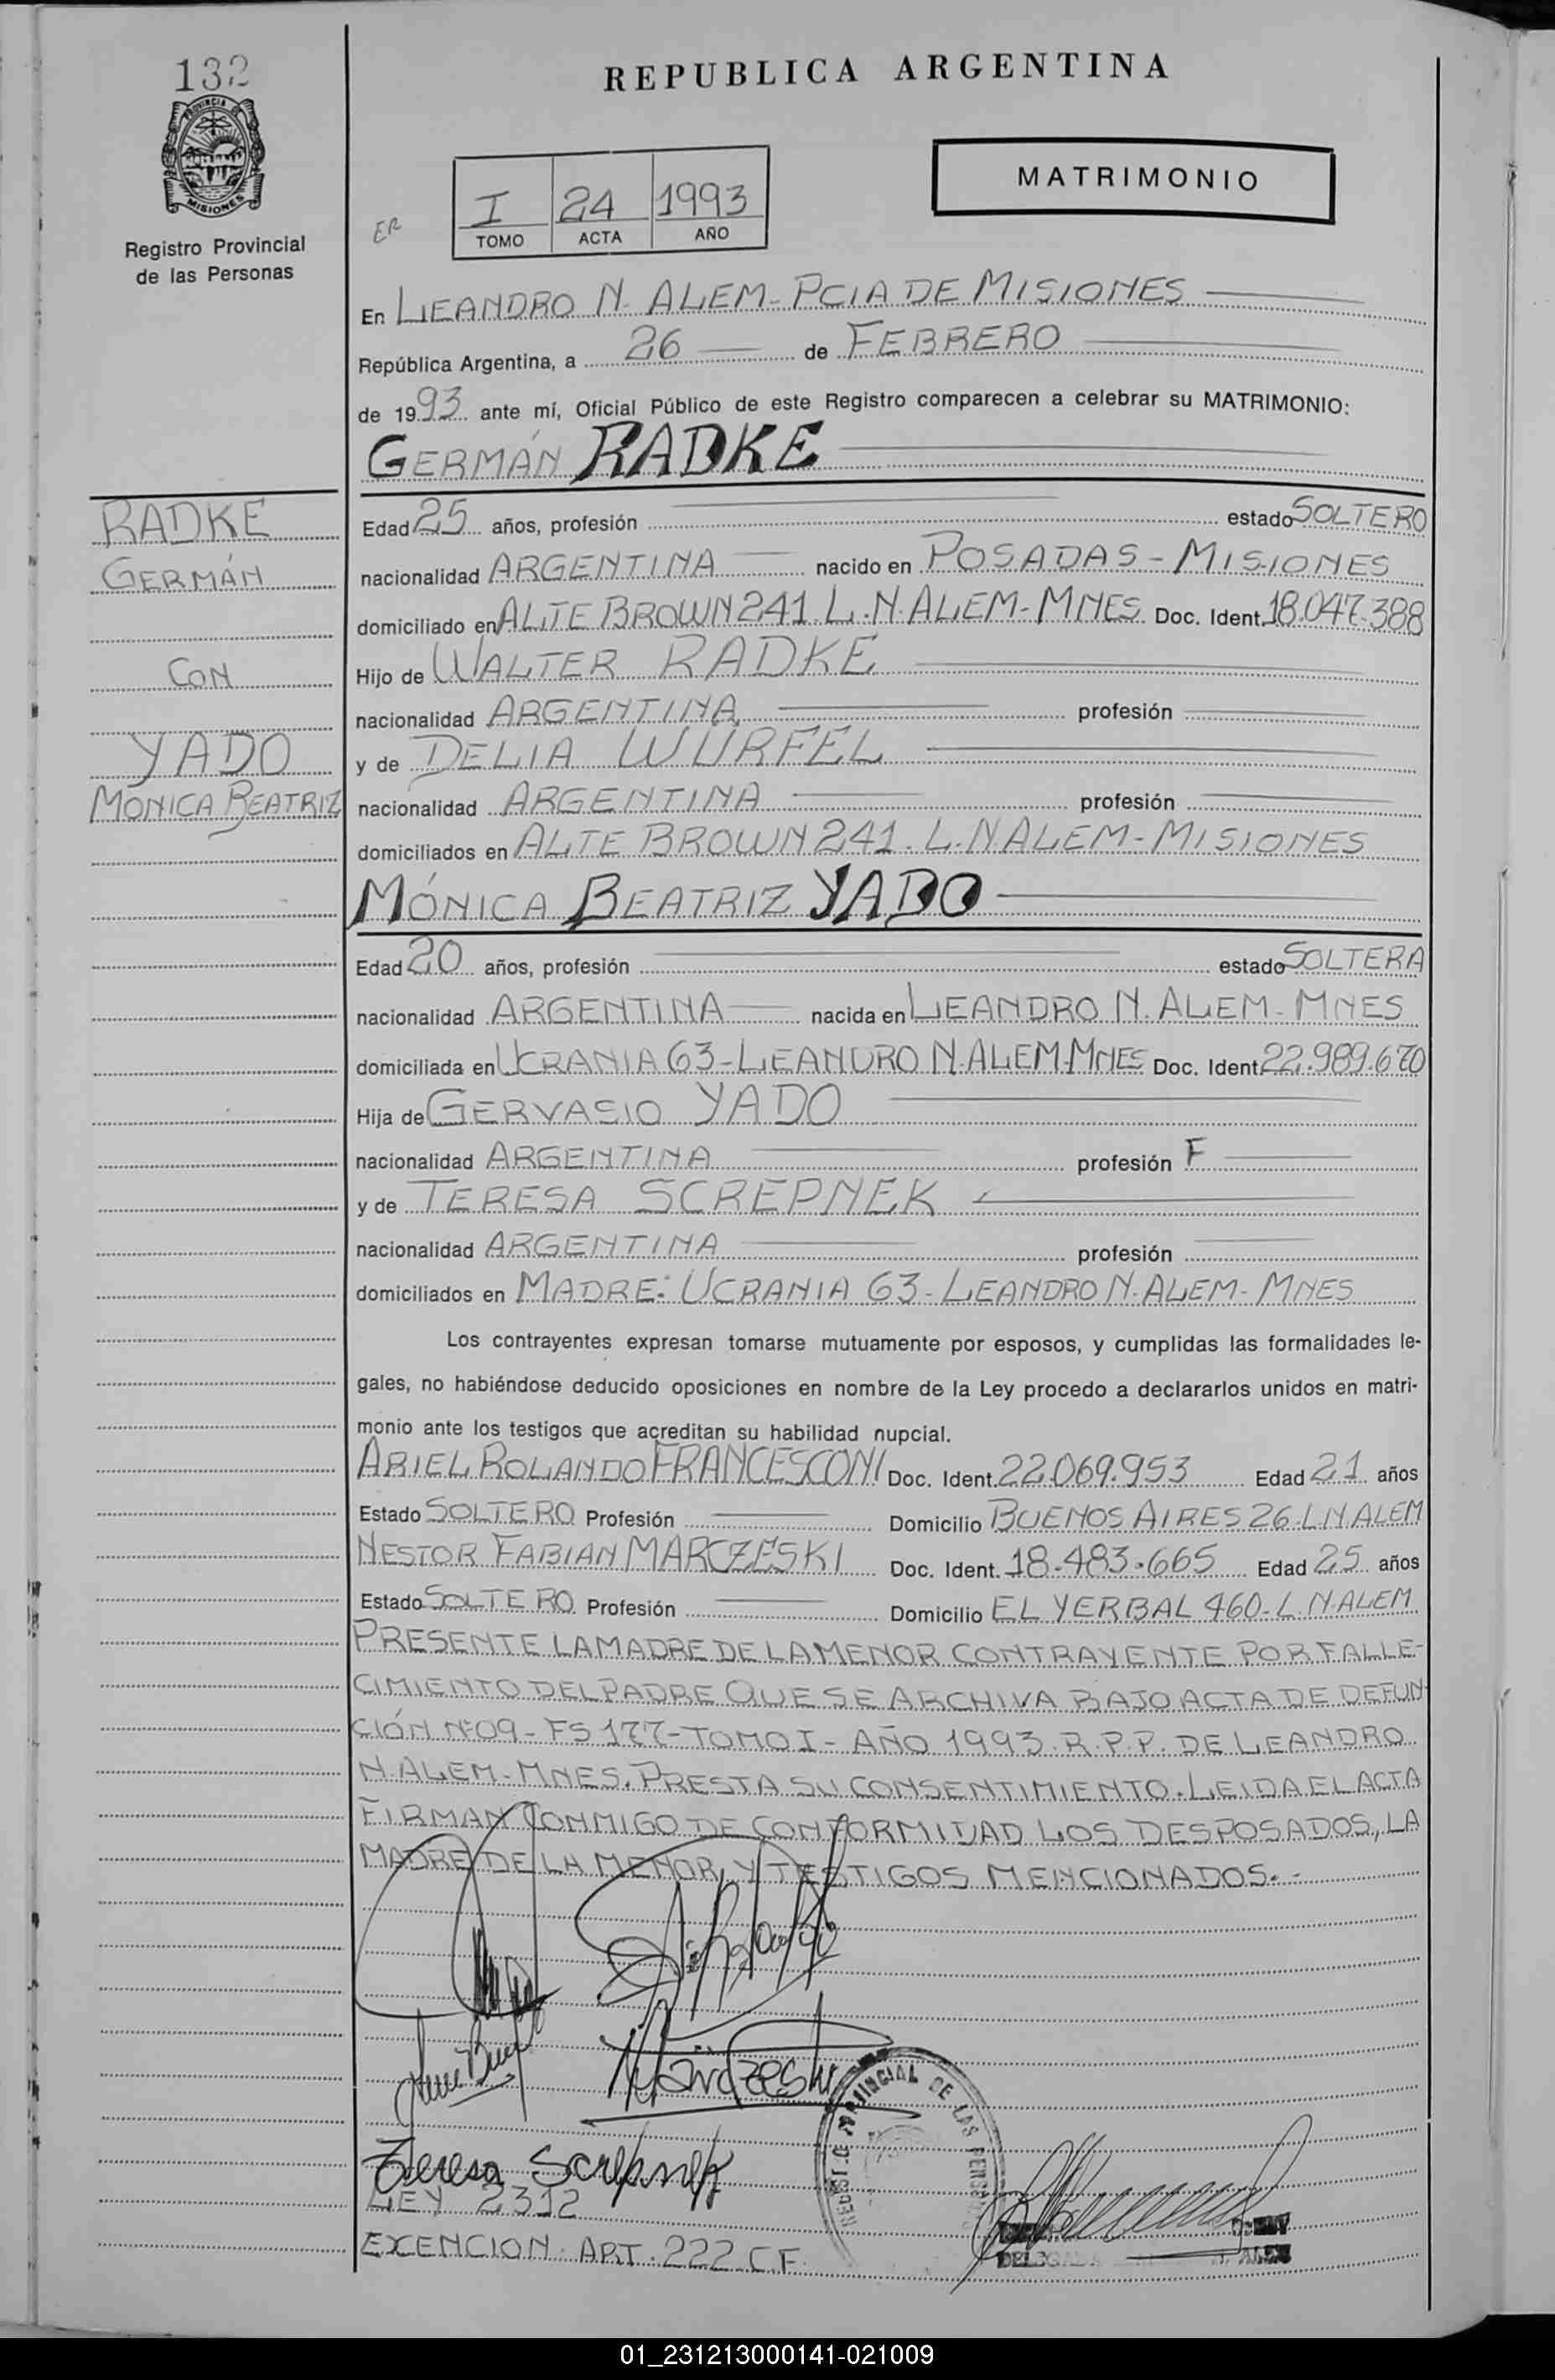 132
REPUBLICA ARGENTINA
PROVINCIA DE
MISIONES
Registro Provincial
de las Personas
ER
I 24 1993
TOMO ACTA AÑO
MATRIMONIO
En LEANDRO N. ALEM - PCIA DE MISIONES
República Argentina, a 26 de FEBRERO
de 1993 ante mí, Oficial Público de este Registro comparecen a celebrar su MATRIMONIO:
GERMÁN RADKE
RADKE
GERMÁN
CON
YADO
MONICA BEATRIZ
Edad 25 años, profesión estado SOLTERO
nacionalidad ARGENTINA nacido en POSADAS - MISIONES
domiciliado en ALTE BROWN 241. L.N. ALEM - MNES. Doc. Ident. 18.047.388
Hijo de WALTER RADKE
nacionalidad ARGENTINA profesión
y de DELIA WÜRFEL
nacionalidad ARGENTINA profesión
domiciliados en ALTE BROWN 241. L.N ALEM - MISIONES
MÓNICA BEATRIZ YADO
Edad 20 años, profesión estado SOLTERA
nacionalidad ARGENTINA nacida en LEANDRO N. ALEM - MNES
domiciliada en UCRANIA 63 - LEANDRO N. ALEM - MNES Doc. Ident. 22.989.670
Hija de GERVASIO YADO
nacionalidad ARGENTINA profesión F
y de TERESA SCREPNEK
nacionalidad ARGENTINA profesión
domiciliados en MADRE: UCRANIA 63 - LEANDRO N. ALEM - MNES
Los contrayentes expresan tomarse mutuamente por esposos, y cumplidas las formalidades le-
gales, no habiéndose deducido oposiciones en nombre de la Ley procedo a declararlos unidos en matri-
monio ante los testigos que acreditan su habilidad nupcial.
ARIEL ROLANDO FRANCESCONI Doc. Ident. 22.069.953 Edad 21 años
Estado SOLTERO Profesión Domicilio BUENOS AIRES 26 - L N ALEM
NESTOR FABIAN MARCZESKI Doc. Ident. 18.483.665 Edad 25 años
Estado SOLTERO Profesión Domicilio EL YERBAL 460 - L. N. ALEM
PRESENTE LA MADRE DE LA MENOR CONTRAYENTE POR FALLE-
CIMIENTO DEL PADRE QUE SE ARCHIVA BAJO ACTA DE DEFUN-
CIÓN Nº 09 - FS 177 - TOMO I - AÑO 1993. R.P.P. DE LEANDRO
N. ALEM - MNES. PRESTA SU CONSENTIMIENTO. LEIDA EL ACTA
FIRMAN CONMIGO DE CONFORMIDAD LOS DESPOSADOS, LA
MADRE DE LA MENOR, Y TESTIGOS MENCIONADOS. -
Marczeski
REGISTRO PROVINCIAL DE LAS PERSONAS
Teresa Screpnek
LEY 2312
EXENCION ART. 222 C.F.
01_231213000141-021009